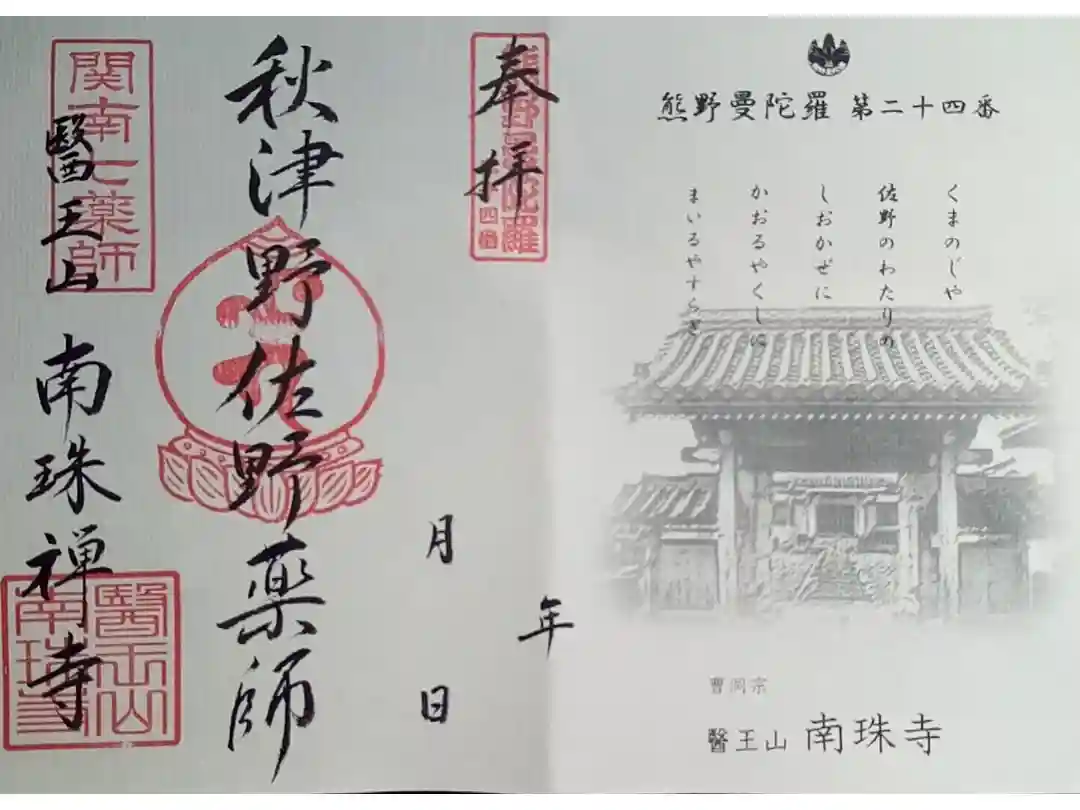 熊野曼陀羅 第二十四番
くまのじや
佐野のわたりの
しおかぜに
かおるやくしに
まいるやすらぎ
曹洞宗
醫王山 南珠寺
奉拝
熊野曼陀羅
十四番
年
月 日
秋津野佐野薬師
関南七薬師
醫王山 南珠禅寺
醫王山
南珠寺